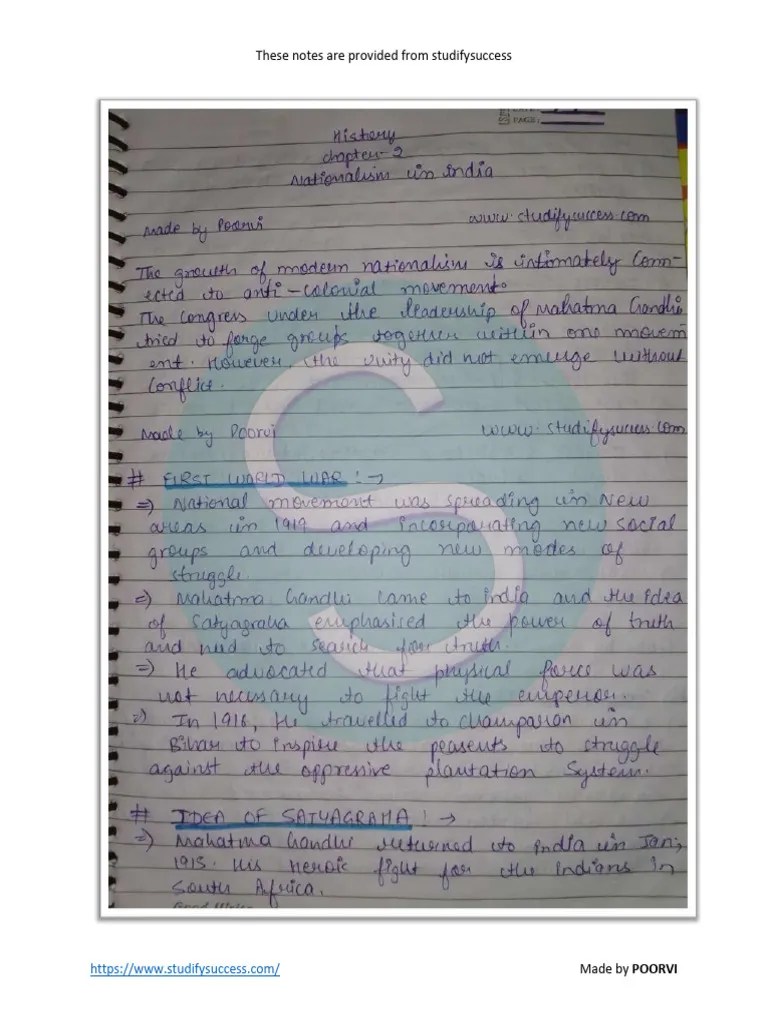 These notes are provided from studifysuccess
PAGE:
History
chapter-2
Nationalism in India
Made by Poorvi www.studifysuccess.com
The growth of modern nationalism is intimately Conn-
ected to anti-colonial movement.
The Congress under the leadership of Mahatma Gandhi
tried to forge groups together within one movem
ent. However, the unity did not emerge without
Conflict.
Made by Poorvi www.studifysuccess.com
# FIRST WORLD WAR :→
⇒) National movement was spreading in New
areas in 1919 and incorporating new social
groups and developing new modes of
struggle.
⇒) Mahatma Gandhi came to India and the idea
of Satyagraha emphasised the power of truth
and need to search for truth.
⇒) He advocated that physical force was
not necessary to fight the emperior.
⇒) In 1916, He travelled to Champaran in
Bihar to inspire the peasents to struggle
against the oppresive plantation System.
# IDEA OF SATYAGRAHA :→
⇒) Mahatma Gandhi returned to India in Jan,
1915. His Heroic fight for the Indians in
South Africa.
https://www.studifysuccess.com/ Made by POORVI